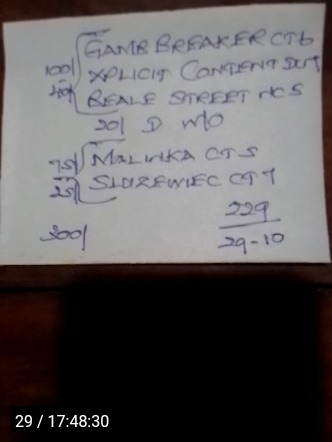 GAME BREAKER CT6
100/ XPLICIT CONTENT DUT
40/ BEALE STREET NCS
20/ D W/O
75/ MALINKA CTS
25/ SLUZEWIEC CT7
300/ 229
29-10
29 / 17:48:30